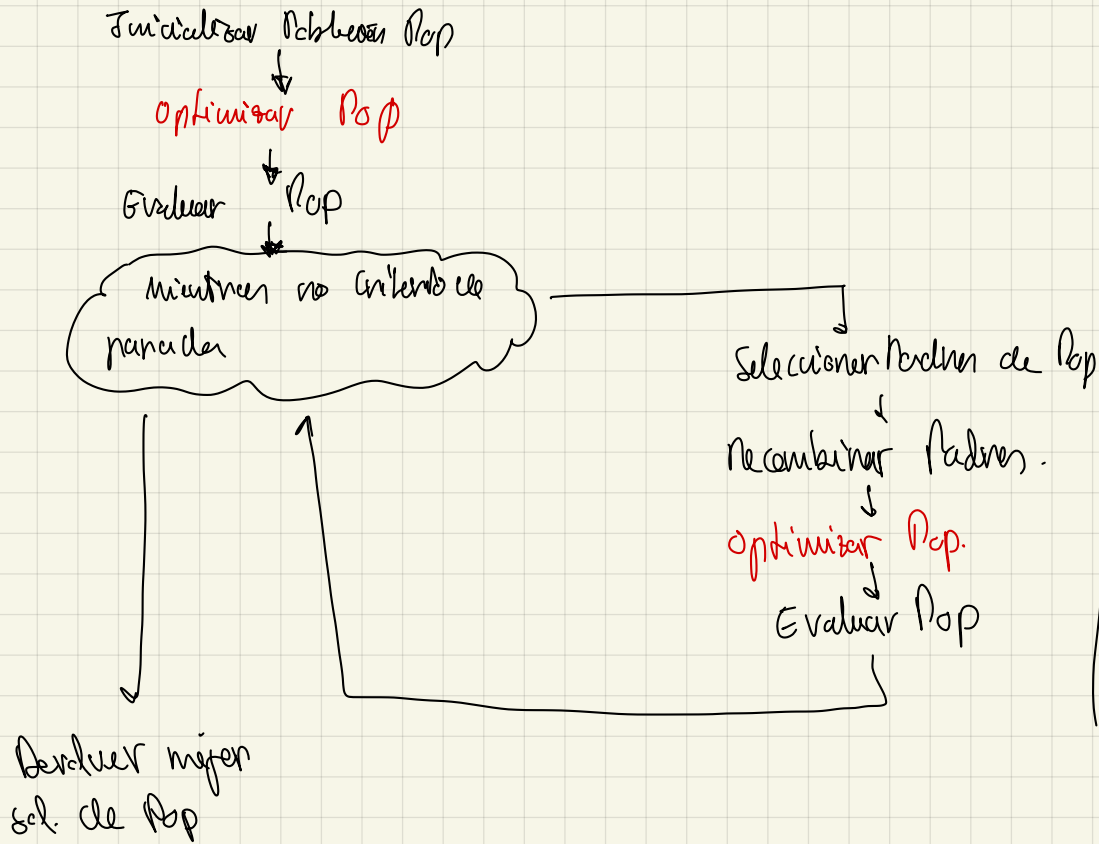 Inicializar Población Pop
Optimizar Pop
Evaluar Pop
Mientras no Criterio de
parada
Seleccionar Padres de Pop
Recombinar Padres.
Optimizar Pop.
Evaluar Pop
Devolver mejor
sol. de Pop